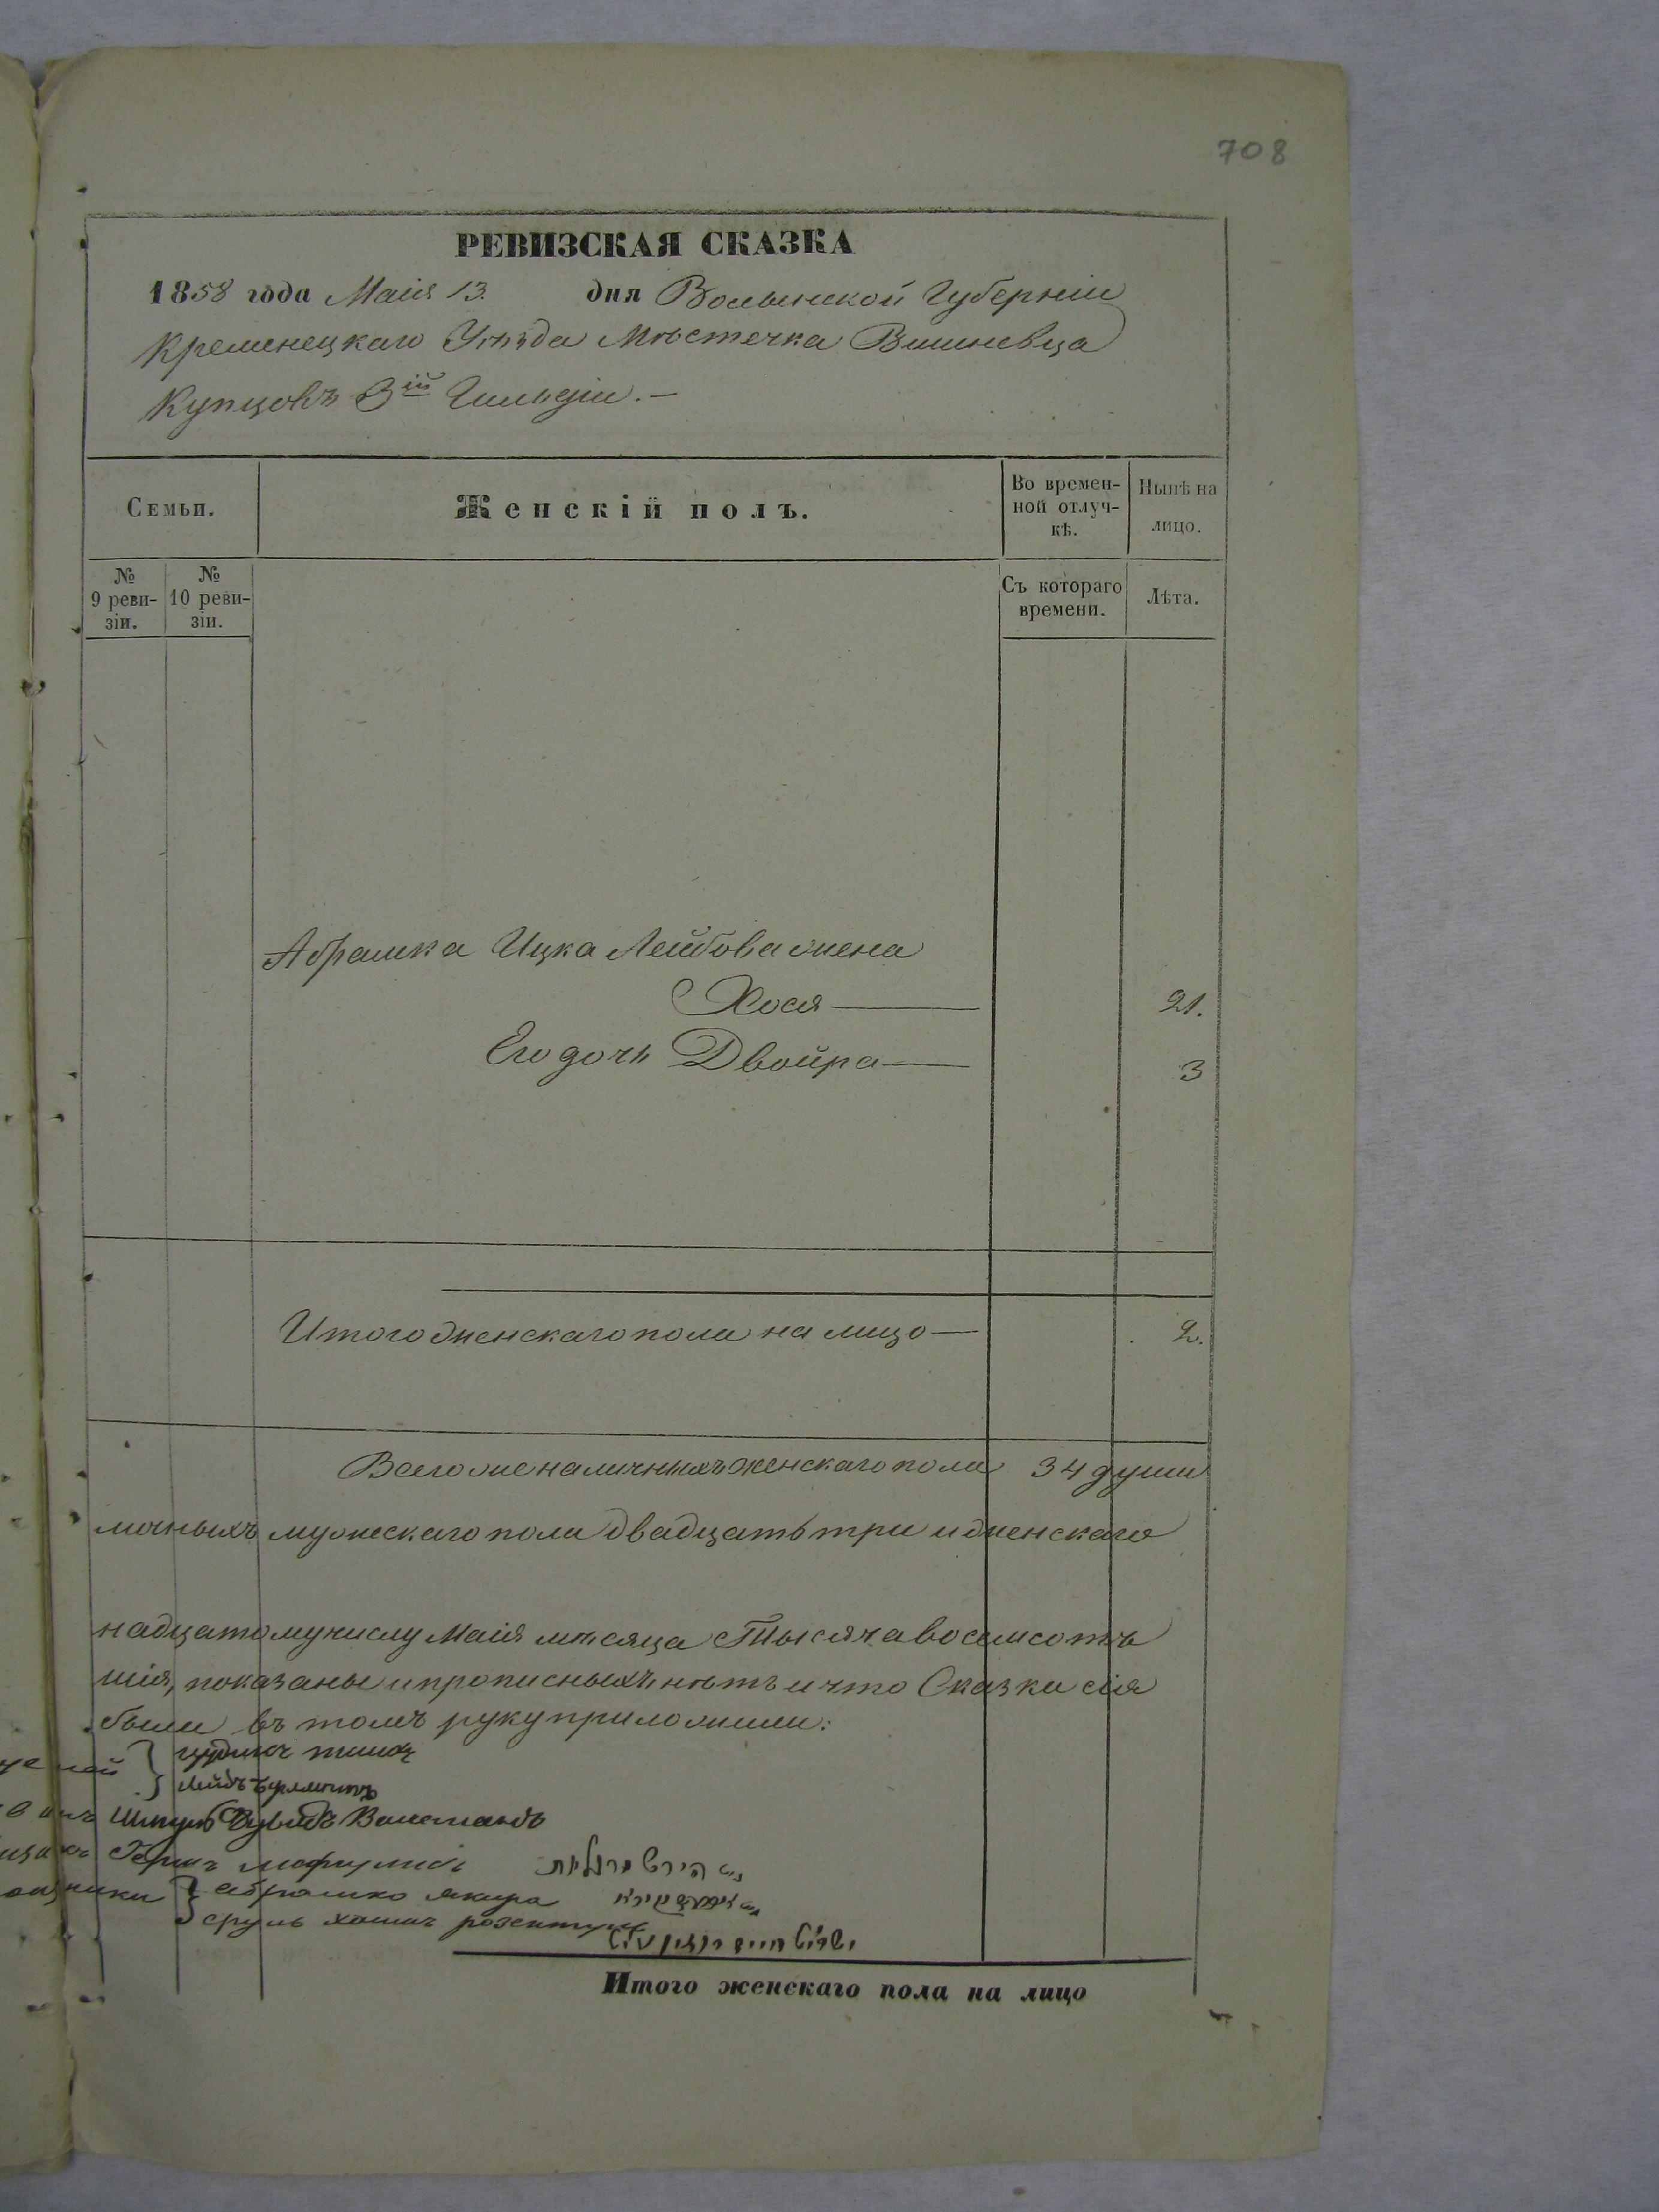 708
РЕВИЗСКАЯ СКАЗКА
1858 года Маія 13. дня Волынской Губерніи
Кременецкаго Уѣзда Мѣстечка Вишневца
Купцовъ 3ій Гильдіи.—
Семьи.
Женскій полъ.
Во времен-
ной отлуч-
кѣ.
Нынѣ на
лицо.
№
9 реви-
зіи.
№
10 реви-
зіи.
Съ котораго
времени.
Лѣта.
Абрамка Ицка Лейбова жена
Хося — 21.
Его дочь Двойра — 3
Итого женскаго пола на лицо — 2.
Всего же наличныхъ женскаго пола 34 души
личныхъ мужескаго пола двадцать три и женскаго
надцатому числу Маія мѣсяца Тысяча восемсотъ
шія, показаны и прописныхъ нѣтъ и что Сказки сія
были въ томъ руку приложили:
Шмуль
Гершъ
абрамко якира
сруль хаимъ розенталь
Итого женскаго пола на лицо